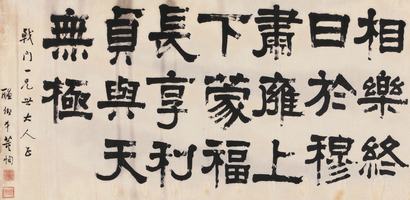 相樂終
日於穆
肅雍上
下蒙福
長享利
貞與天
無極
戟門一兄世大人正